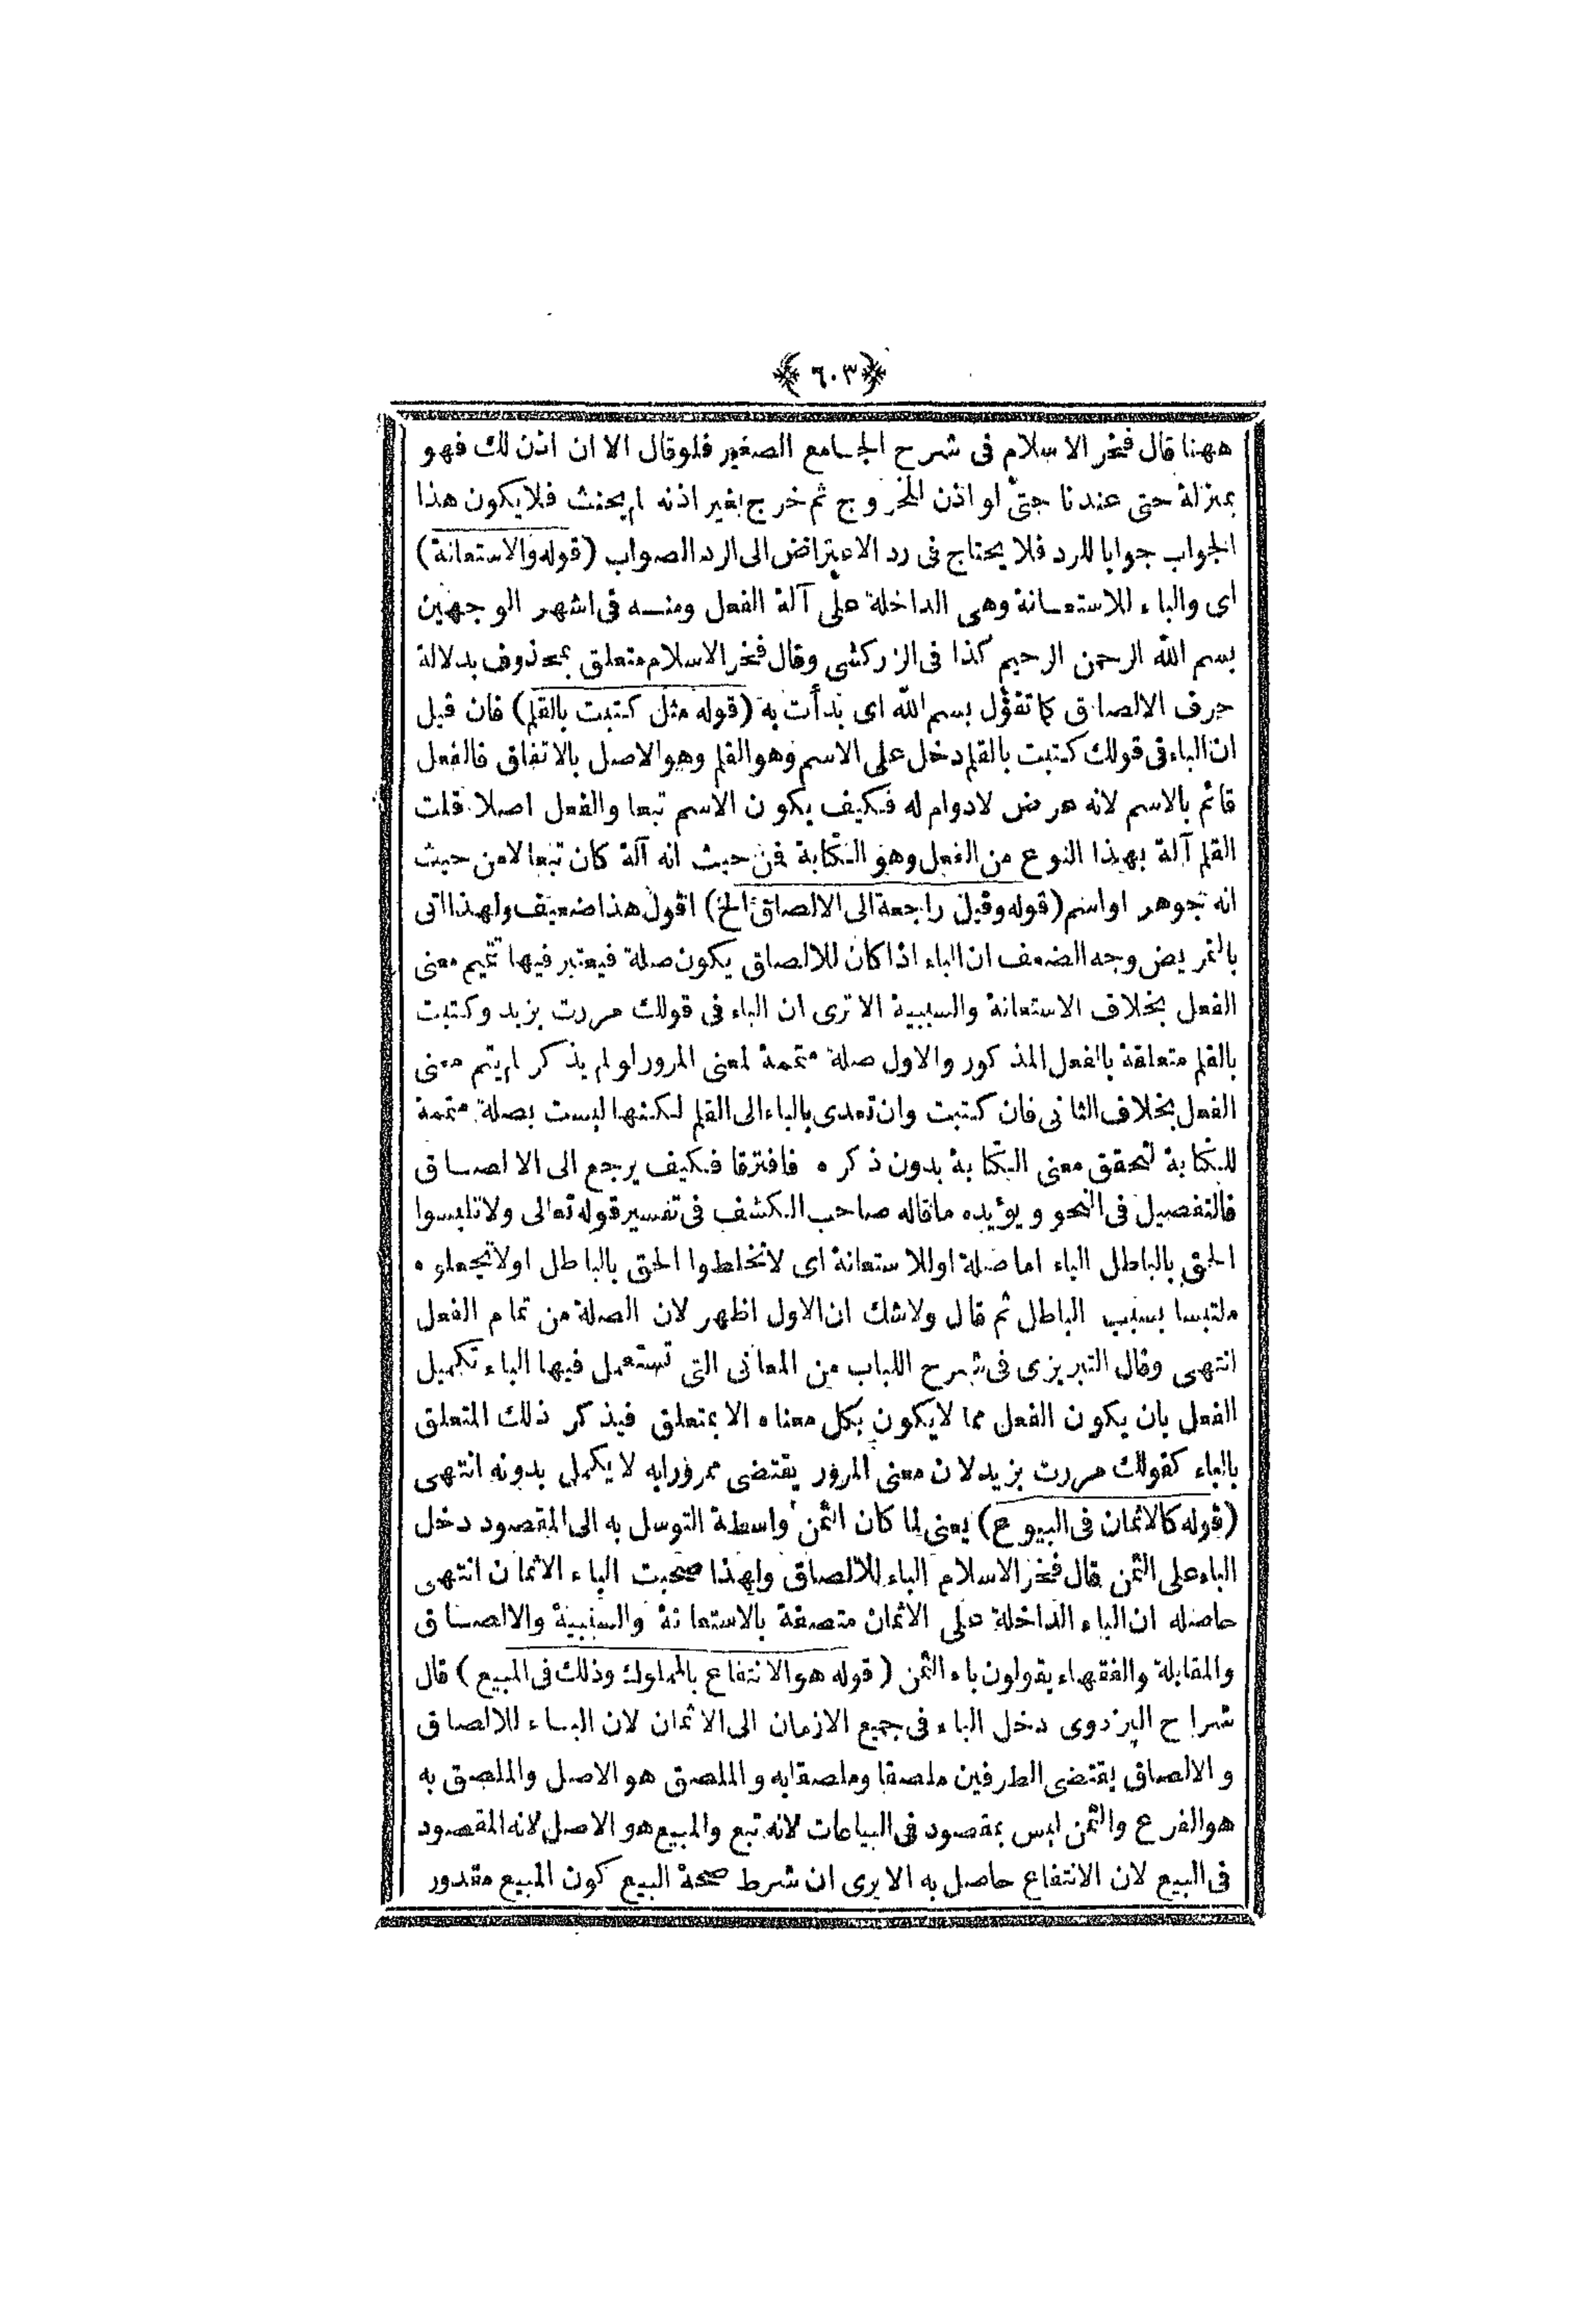 ﴿ ٦٠٣ ﴾
ههنا قال فخر الاسلام فى شرح الجامع الصغير فلو قال الا ان اذن لك فهو
بمنزلة حتى عندنا حتى لو اذن للخروج ثم خرج بغير اذنه لم يحنث فلا يكون هذا
الجواب جوابا للرد فلا يحتاج فى رد الاعتراض الى الرد الصواب (قوله والاستعانة)
اى والباء للاستعانة وهى الداخلة على آلة الفعل ومنه فى اشهر الوجهين
بسم الله الرحمن الرحيم كذا فى الزركشى وقال فخر الاسلام متعلق بمحذوف بدلالة
حرف الالصاق كما تقول بسم الله اى بدأت به (قوله مثل كتبت بالقلم) فان قيل
ان الباء فى قولك كتبت بالقلم دخل على الاسم وهو القلم وهو الاصل بالاتفاق فالفعل
قائم بالاسم لانه عرض لا دوام له فكيف يكون الاسم تبعا والفعل اصلا قلت
القلم آلة بهذا النوع من الفعل وهو الكتابة فمن حيث انه آلة كان تبعا لا من حيث
انه جوهر او اسم (قوله وقيل راجعة الى الالصاق الخ) اقول هذا ضعيف ولهذا اتى
بالتمريض وجه الضعف ان الباء اذا كان للالصاق يكون صلة فيعتبر فيها تتميم معنى
الفعل بخلاف الاستعانة والسببية الا ترى ان الباء فى قولك مررت بزيد وكتبت
بالقلم متعلقة بالفعل المذكور والاول صلة متممة لمعنى المرور لو لم يذكر لم يتم معنى
الفعل بخلاف الثانى فان كتبت وان تعدى بالباء الى القلم لكنها ليست بصلة متممة
للكتابة لتحقق معنى الكتابة بدون ذكره فافترقا فكيف يرجع الى الالصاق
فالتفصيل فى النحو ويؤيده ما قاله صاحب الكشف فى تفسير قوله تعالى ولا تلبسوا
الحق بالباطل الباء اما صلة او للاستعانة اى لا تخلطوا الحق بالباطل او لا تجعلوه
ملتبسا بسبب الباطل ثم قال ولا شك ان الاول اظهر لان الصلة من تمام الفعل
انتهى وقال التبريزى فى شرح اللباب من المعانى التى تستعمل فيها الباء تكميل
الفعل بان يكون الفعل مما لا يكون يكمل معناه الا بمتعلق فيذكر ذلك المتعلق
بالباء كقولك مررت بزيد لان معنى المرور يقتضى ممرورا به لا يكمل بدونه انتهى
(قوله كالاثمان فى البيوع) يعنى لما كان الثمن واسطة التوسل به الى المقصود دخل
الباء على الثمن قال فخر الاسلام الباء للالصاق ولهذا صحبت الباء الاثمان انتهى
حاصله ان الباء الداخلة على الاثمان متصفة بالاستعانة والسببية والالصاق
والمقابلة والفقهاء يقولون باء الثمن (قوله هو الانتفاع بالمملوك وذلك فى المبيع) قال
شراح البزدوى دخل الباء فى جميع الازمان الى الاثمان لان الباء للالصاق
والالصاق يقتضى الطرفين ملصقا وملصقا به والملصق هو الاصل والملصق به
هو الفرع والثمن ليس بمقصود فى البياعات لانه تبع والمبيع هو الاصل لانه المقصود
فى البيع لان الانتفاع حاصل به الا يرى ان شرط صحة البيع كون المبيع مقدور